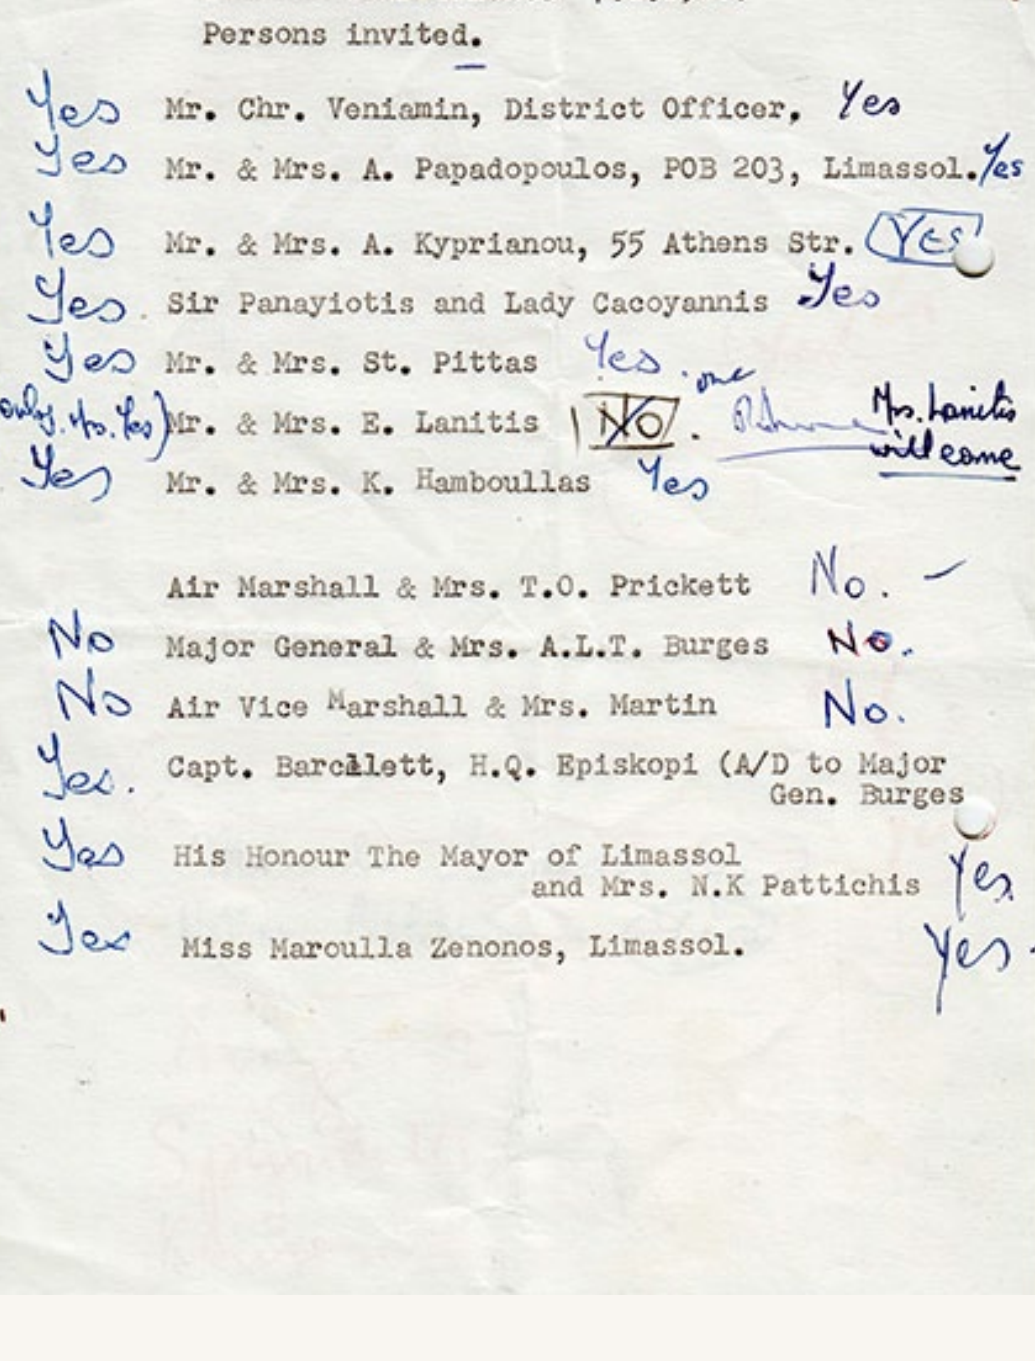 Persons invited.
Yes Mr. Chr. Veniamin, District Officer, Yes
Yes Mr. & Mrs. A. Papadopoulos, POB 203, Limassol. Yes
Yes Mr. & Mrs. A. Kyprianou, 55 Athens Str. YES
Yes. Sir Panayiotis and Lady Cacoyannis Yes
Yes Mr. & Mrs. St. Pittas Yes.
one
only. Mrs. Yes) Mr. & Mrs. E. Lanitis NO. Mrs. Lanitis
will come
Yes Mr. & Mrs. K. Hamboullas Yes
Air Marshall & Mrs. T.O. Prickett No. -
No Major General & Mrs. A.L.T. Burges No.
No Air Vice Marshall & Mrs. Martin No.
Yes. Capt. , H.Q. Episkopi (A/D to Major
Gen. Burges
Yes His Honour The Mayor of Limassol
and Mrs. N.K Pattichis Yes.
Yes Miss Maroulla Zenonos, Limassol. Yes.